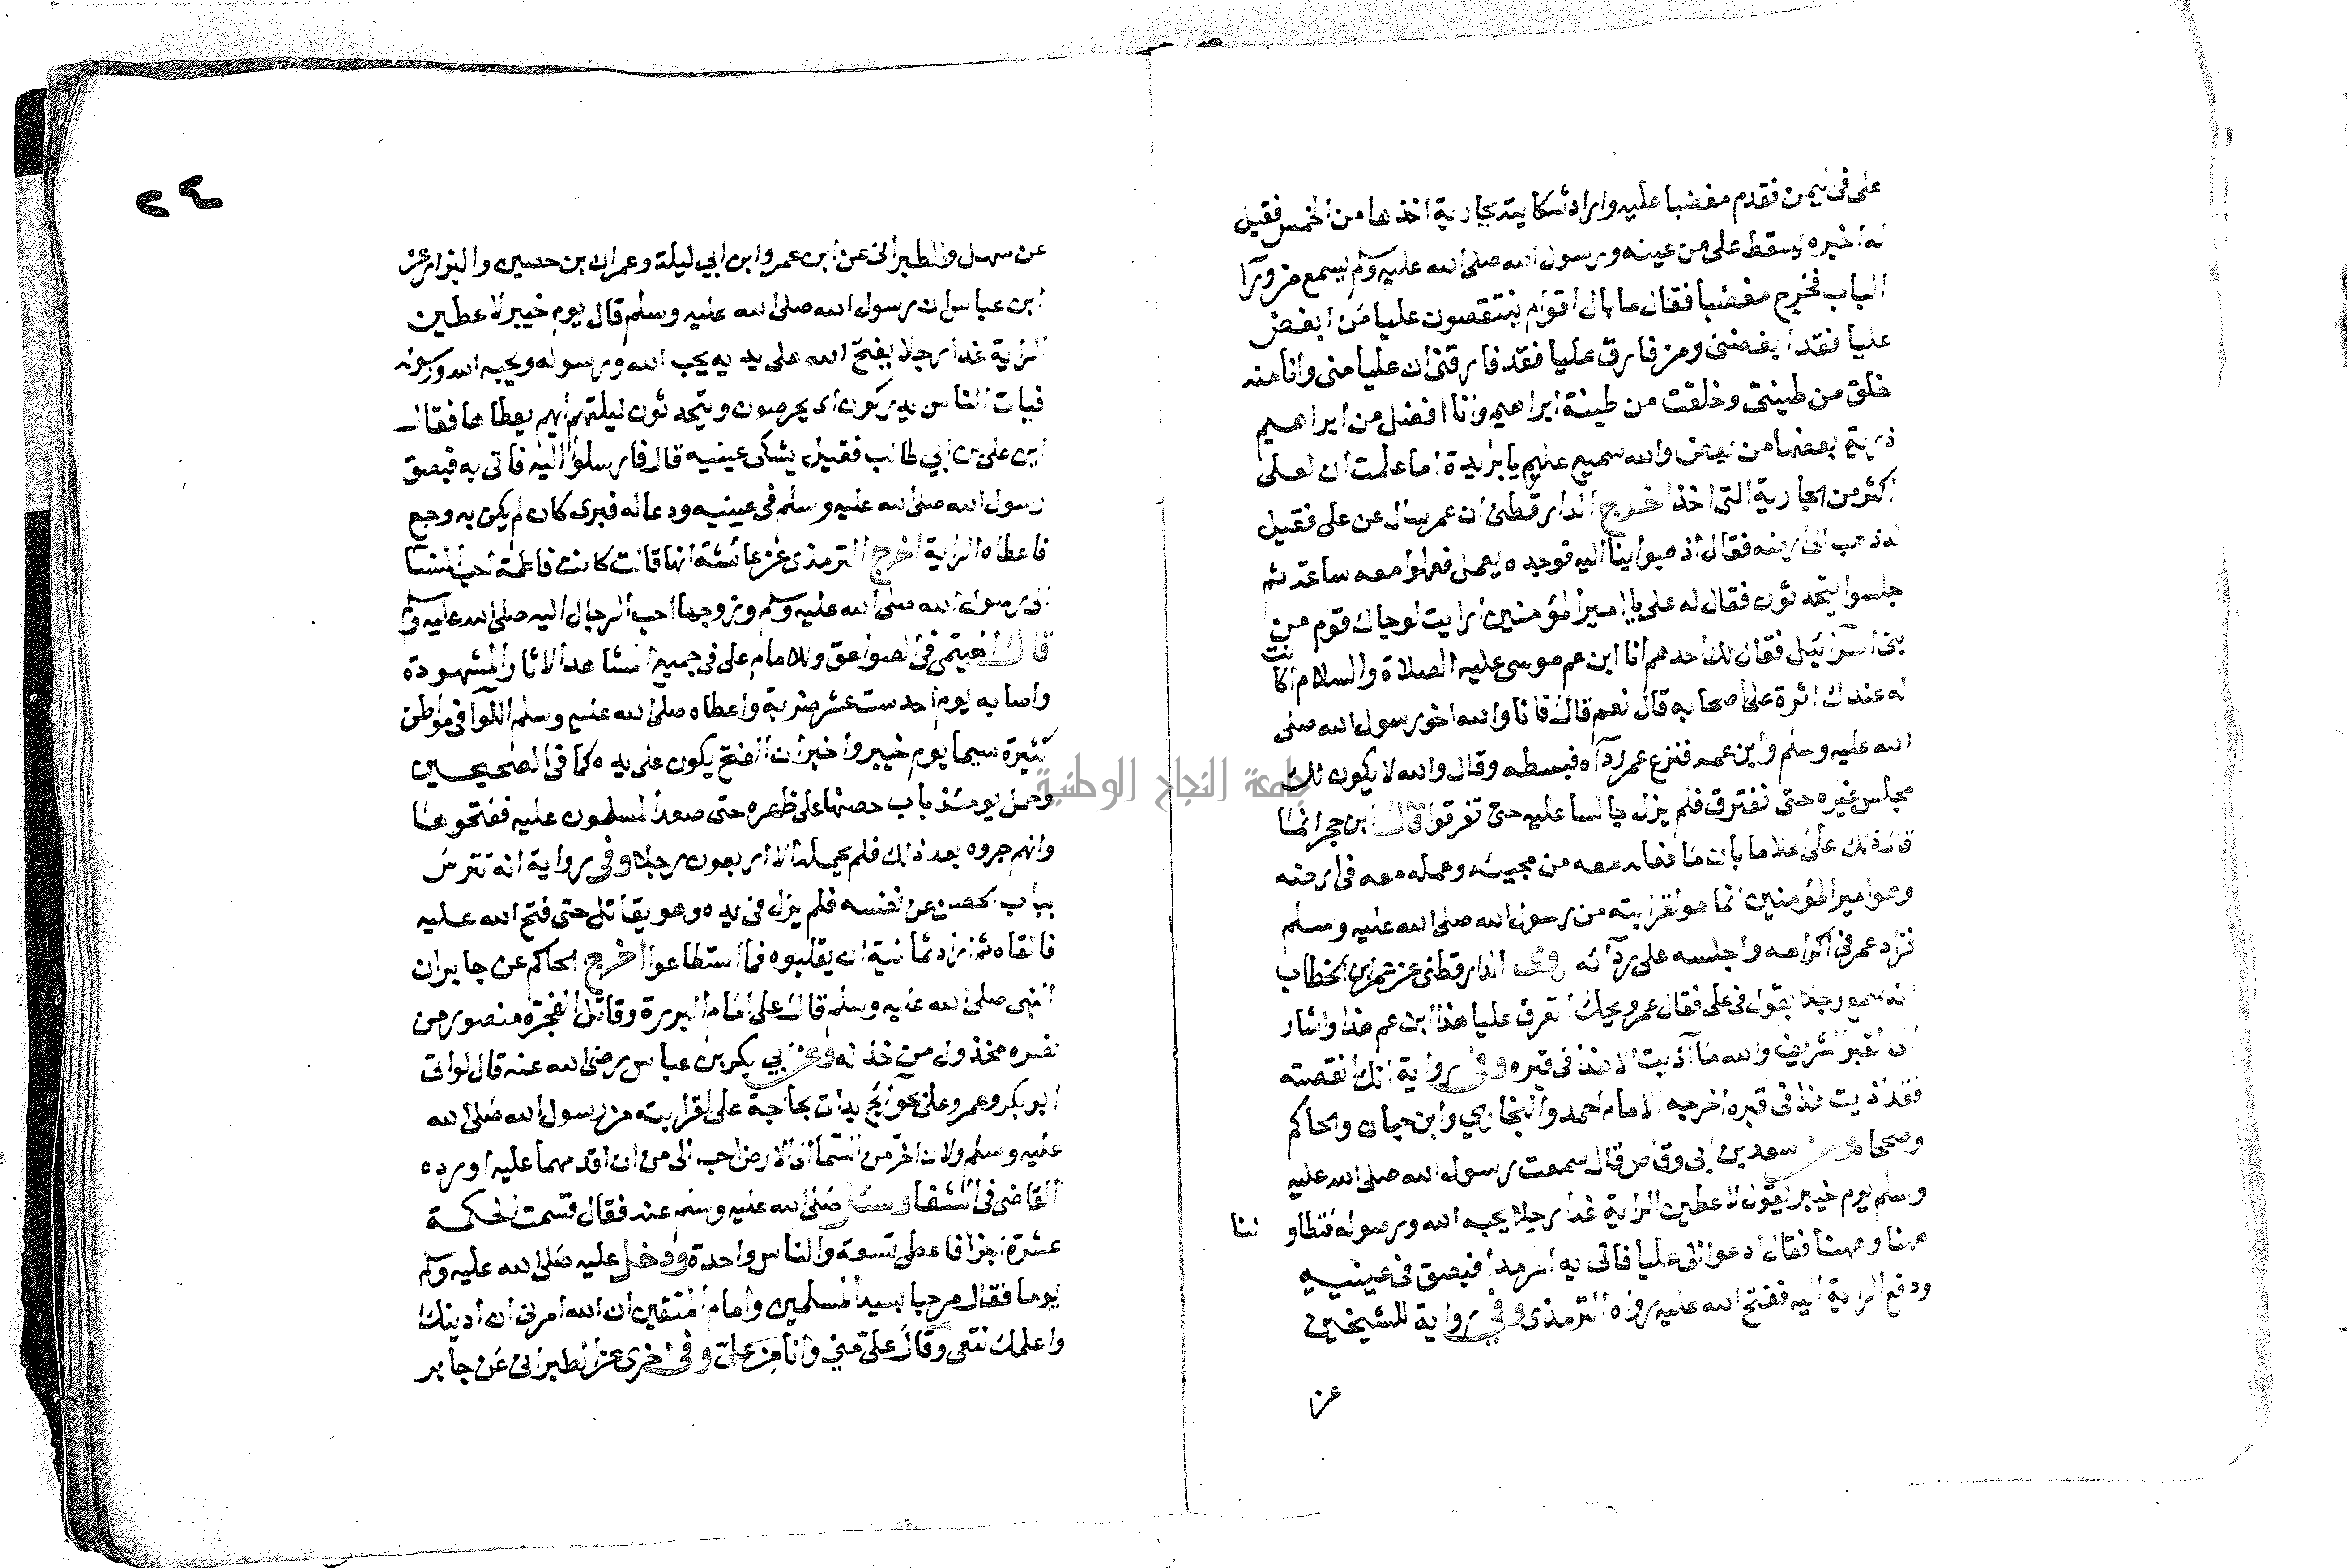 على في اليمن فقدم مغضبا عليه واراد شكايته بجارية اخذها من الخمس فقيل
له اخبره يسقط على من عينه ورسول الله صلى الله عليه وسلم يسمع من ورآ
الباب فخرج مغضبا فقال ما بال اقوام ينتقصون عليا من ابغض
عليا فقد ابغضني ومن فارق عليا فقد فارقني ان عليا مني وانا منه
خلق من طينتي وخلقت من طينة ابراهيم وانا افضل من ابراهيم
ذرية بعضها من بعض والله سميع عليم يا بريدة اما علمت ان لعلى
اكثر من الجارية التى اخذ اخرج الدارقطنى ان عمر سال عن على فقيل
له ذهب الى ارضه فقال اذهبوا بنا اليه فوجده يعمل فعملوا معه ساعة ثم
جلسوا يتحدثون فقال له على يا امير المؤمنين ارايت لو جاك قوم من
بنى اسرائيل فقال لك احدهم انا ابن عم موسى عليه الصلاة والسلام اكانت
له عندك اثرة على اصحابه قال نعم قال فانا والله اخو رسول الله صلى
الله عليه وسلم وابن عمه فنزع عمر ردآه فبسطه وقال والله لا يكون لك
مجلس غيره حتى نفترق فلم يزل جالسا عليه حتى تفرقوا قال ابن حجر انما
قال ذلك على اعلاما بان ما فعله معه من مجيئه وعمله معه في ارضه
وهو امير المؤمنين انما هو لقرابته من رسول الله صلى الله عليه وسلم
فزاد عمر في اكرامه واجلسه على ردآئه روى الدارقطنى عن عمر ابن الخطاب
انه سمع رجلا يقول في على فقال عمر ويحك اتعرف عليا هذا ابن عم هذا واشار
الى القبر الشريف والله ما آذيت الا هذا في قبره وفي رواية انك ان نقصته
فقد اذيت هذا في قبره اخرجه الامام احمد والبخاري وابن حبان والحاكم
وصححاه وعن سعد بن ابي وقاص قال سمعت رسول الله صلى الله عليه
وسلم يوم خيبر يقول لاعطين الراية غدا رجلا يحبه الله ورسوله فتطاولنا
ههنا وههنا فقال ادعوا الى عليا فاتى به ارمدا فبصق في عينيه
ودفع الراية اليه ففتح الله عليه رواه الترمذى وفي رواية للشيخين
عن
٢٤
عن سهل والطبرانى عن ابن عمر وابن ابي ليلة وعمران بن حصين والبزار عن
ابن عباس ان رسول الله صلى الله عليه وسلم قال يوم خيبر لاعطين
الراية غدا رجلا يفتح الله على يديه يحب الله ورسوله ويحبه الله ورسوله
فبات الناس يدركون اى يحرصون ويتحدثون ليلتهم ايهم يعطاها فقال
اين على بن ابي طالب فقيل يشتكى عينيه قال فارسلوا اليه فاتى به فبصق
رسول الله صلى الله عليه وسلم في عينيه ودعا له فبرى كان لم يكن به وجع
فاعطاه الراية اخرج الترمذى عن عائشة انها قالت كانت فاطمة احب النسا
الى رسول الله صلى الله عليه وسلم وزوجها احب الرجال اليه صلى الله عليه وسلم
قال الهيتمي في الصواعق وللامام على في جميع المشاهد الاثار المشهودة
واصابه يوم احد ست عشر ضربة واعطاه صلى الله عليه وسلم اللوآ في مواطن
كثيرة سيما يوم خيبر واخبر ان الفتح يكون على يده كما في الصحيحين
وحمل يومئذ باب حصنها على ظهره حتى صعد المسلمون عليه ففتحوها
وانهم جروه بعد ذلك فلم يحمله الا اربعون رجلا وفي رواية انه تترس
بباب الحصن عن نفسه فلم يزل في يده وهو يقاتل حتى فتح الله عليه
فالقاه ثم اراد ثمانية ان يقلبوه فما استطاعوا اخرج الحاكم عن جابر ان
النبى صلى الله عليه وسلم قال على امام البررة وقاتل الفجرة منصور من
نصره مخذول من خذله وعن ابي بكر بن عباس رضى الله عنه قال لو اتى
ابو بكر وعمر وعلى بحوآئج بدات بحاجة على لقرابته من رسول الله صلى الله
عليه وسلم ولان اخر من السما الى الارض احب الى من ان اقدمهما عليه اورده
القاضى في الشفا وسئل صلى الله عليه وسلم عنه فقال قسمت الحكمة
عشرة اجزا فاعطى تسعة والناس واحدة ودخل عليه صلى الله عليه وسلم
يوما فقال مرحبا بسيد المسلمين وامام المتقين ان الله امرنى ان ادينك
واعلمك لتعى وقال على مني وانا من على وفي اخرى عن الطبرانى عن جابر
جامعة النجاح الوطنية